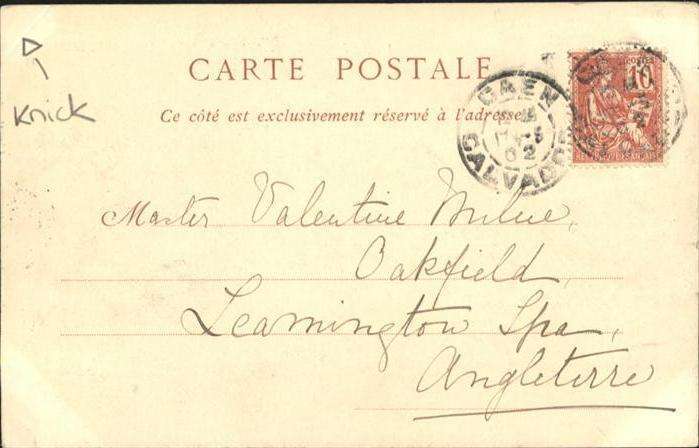 Knick
CARTE POSTALE
Ce côté est exclusivement réservé à l'adresse
CAEN
CALVADOS
02
10
Master Valentine Milne,
Oakfield,
Leamington Spa,
Angleterre